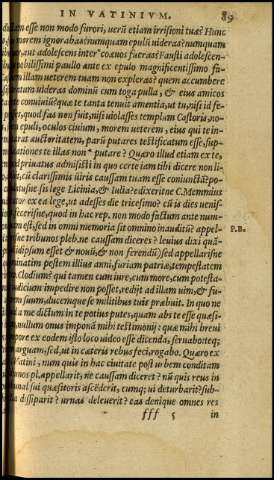 IN VATINIVM. 89
esse non modo furori, uerū etiam irrisioni tuas? Hunc
morem ignorabas? nunquam epulū uideras? nunquam
aut adolescens inter coquos fueras? Fausti adolescen-
nobilissimi paullo ante ex epulo magnificentissimo fa-
illam ueterem tuam non expleras? quem accumbere
uideras dominū cum toga pulla, & eius amicos
conuiuiū? quæ te tanta tenuit amentia, ut tu, nisi id fe-
quod fas non fuit, nisi uiolasses templum Castoris, no-
epuli, oculos ciuium, morem ueterem, eius qui te in-
auctoritatem, parū putares testificatum esse, sup-
illas non putare? Quæro illud etiam ex te,
priuatus admisisti in quo certe iam tibi dicere non li-
cū clarissimis uiris caussam tuam esse coniunctā: po-
sis lege Licinia, & Iulia? edixeritne C. Memmius
ex ea lege, ut adesses die tricesimo? cū is dies uenis-
feceris ne, quod in hac rep. non modo factum ante nun-
est, sed in omni memoria sit omnino inauditū? appel-
tribunos pleb. ne caussam diceres? leuius dixi quā-
id ipsum esset & nouū, & non ferendū: sed appellaris ne
nominatim pestem illius anni, furiam patriæ, tempestatem
Clodium? qui tamen cum iure, cum more, cum potesta-
iudicium impedire non posset, redijt ad illam uim, & fu-
suum, ducemque se militibus tuis præbuit. In quo ne
a me dictum in te potius putes, quàm abs te esse quæsi-
nullum onus imponā mihi testimonij: quæ mihi breui
tempore ex eodem isto loco uideo esse dicenda, seruabo: teq;
arguam, sed, ut in cæteris rebus feci, rogabo. Quæro ex
Vatini, num quis in hac ciuitate post urbem conditam
tribunos pl. appellarit, ne caussam diceret? nū quis reus in
tribunal sui quæsitoris ascederit, eumq; ui deturbarit? sub-
dissiparit? urnas deiecerit? eas deniq; omnes res
P.B.
fff 5 in